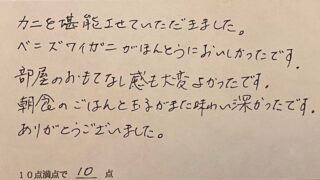 カニを堪能させていただきました。
ベニズワイガニがほんとうにおいしかったです。
部屋のおもてなし感も大変よかったです。
朝食のごはんと玉子がまた味わい深かったです。
ありがとうございました。
10点満点で 10 点